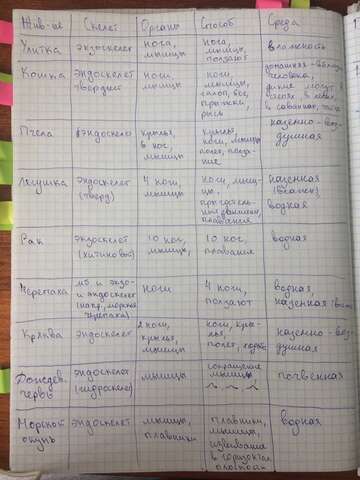 Жив-ые Скелет Органы Способ Среда
Улитка экзоскелет нога, мышцы нога, мышцы, ползают влажность
Кошка эндоскелет твердый ноги, мышцы ноги, мышцы, прыжки, рысь домашняя человека, дикие могут в саванной
Пчела экзоскелет крылья, 6 ног, мышцы крылья, ноги, мышцы полёт наземно-воздушная
Лягушка эндоскелет (тверд) 4 ноги, мышцы ноги, мышцы, плавание наземная водная
Рак экзоскелет (хитиновый) 10 ног, мышцы 10 ног, плавание водная
Черепаха мб и экзо- и эндоскелет (напр., морская черепаха) ноги 4 ноги, ползают водная наземная
Кряква эндоскелет 2 ноги, крылья, мышцы ноги, крылья полёт, наземно-воздушная
Дождев. червь эндоскелет (гидроскелет) мышцы сокращение мышц почвенная
Морской окунь эндоскелет мышцы, плавники плавники, мышцы, в горизонтал. плоскости водная